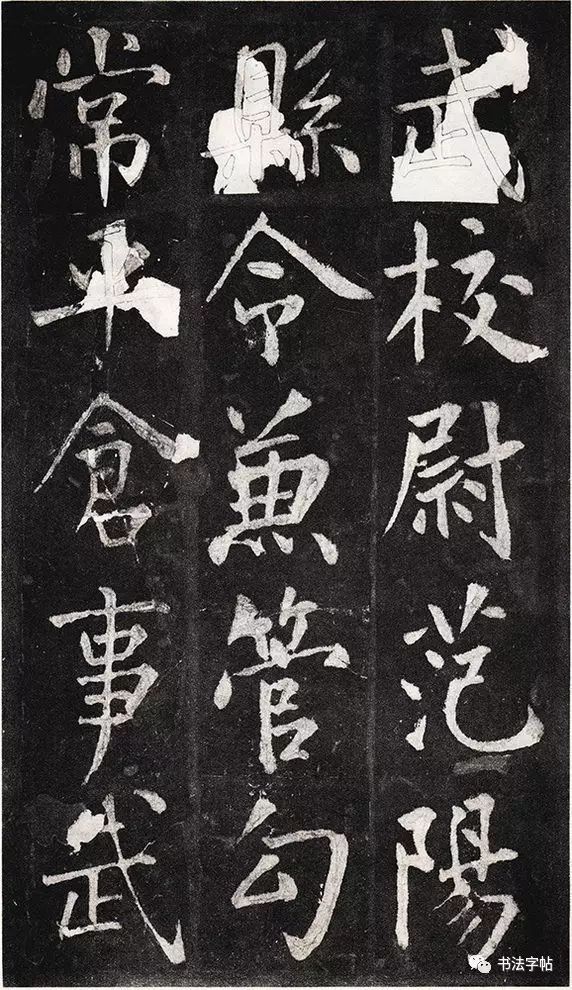 武校尉范陽
縣令兼管勾
常平倉事武
书法字帖